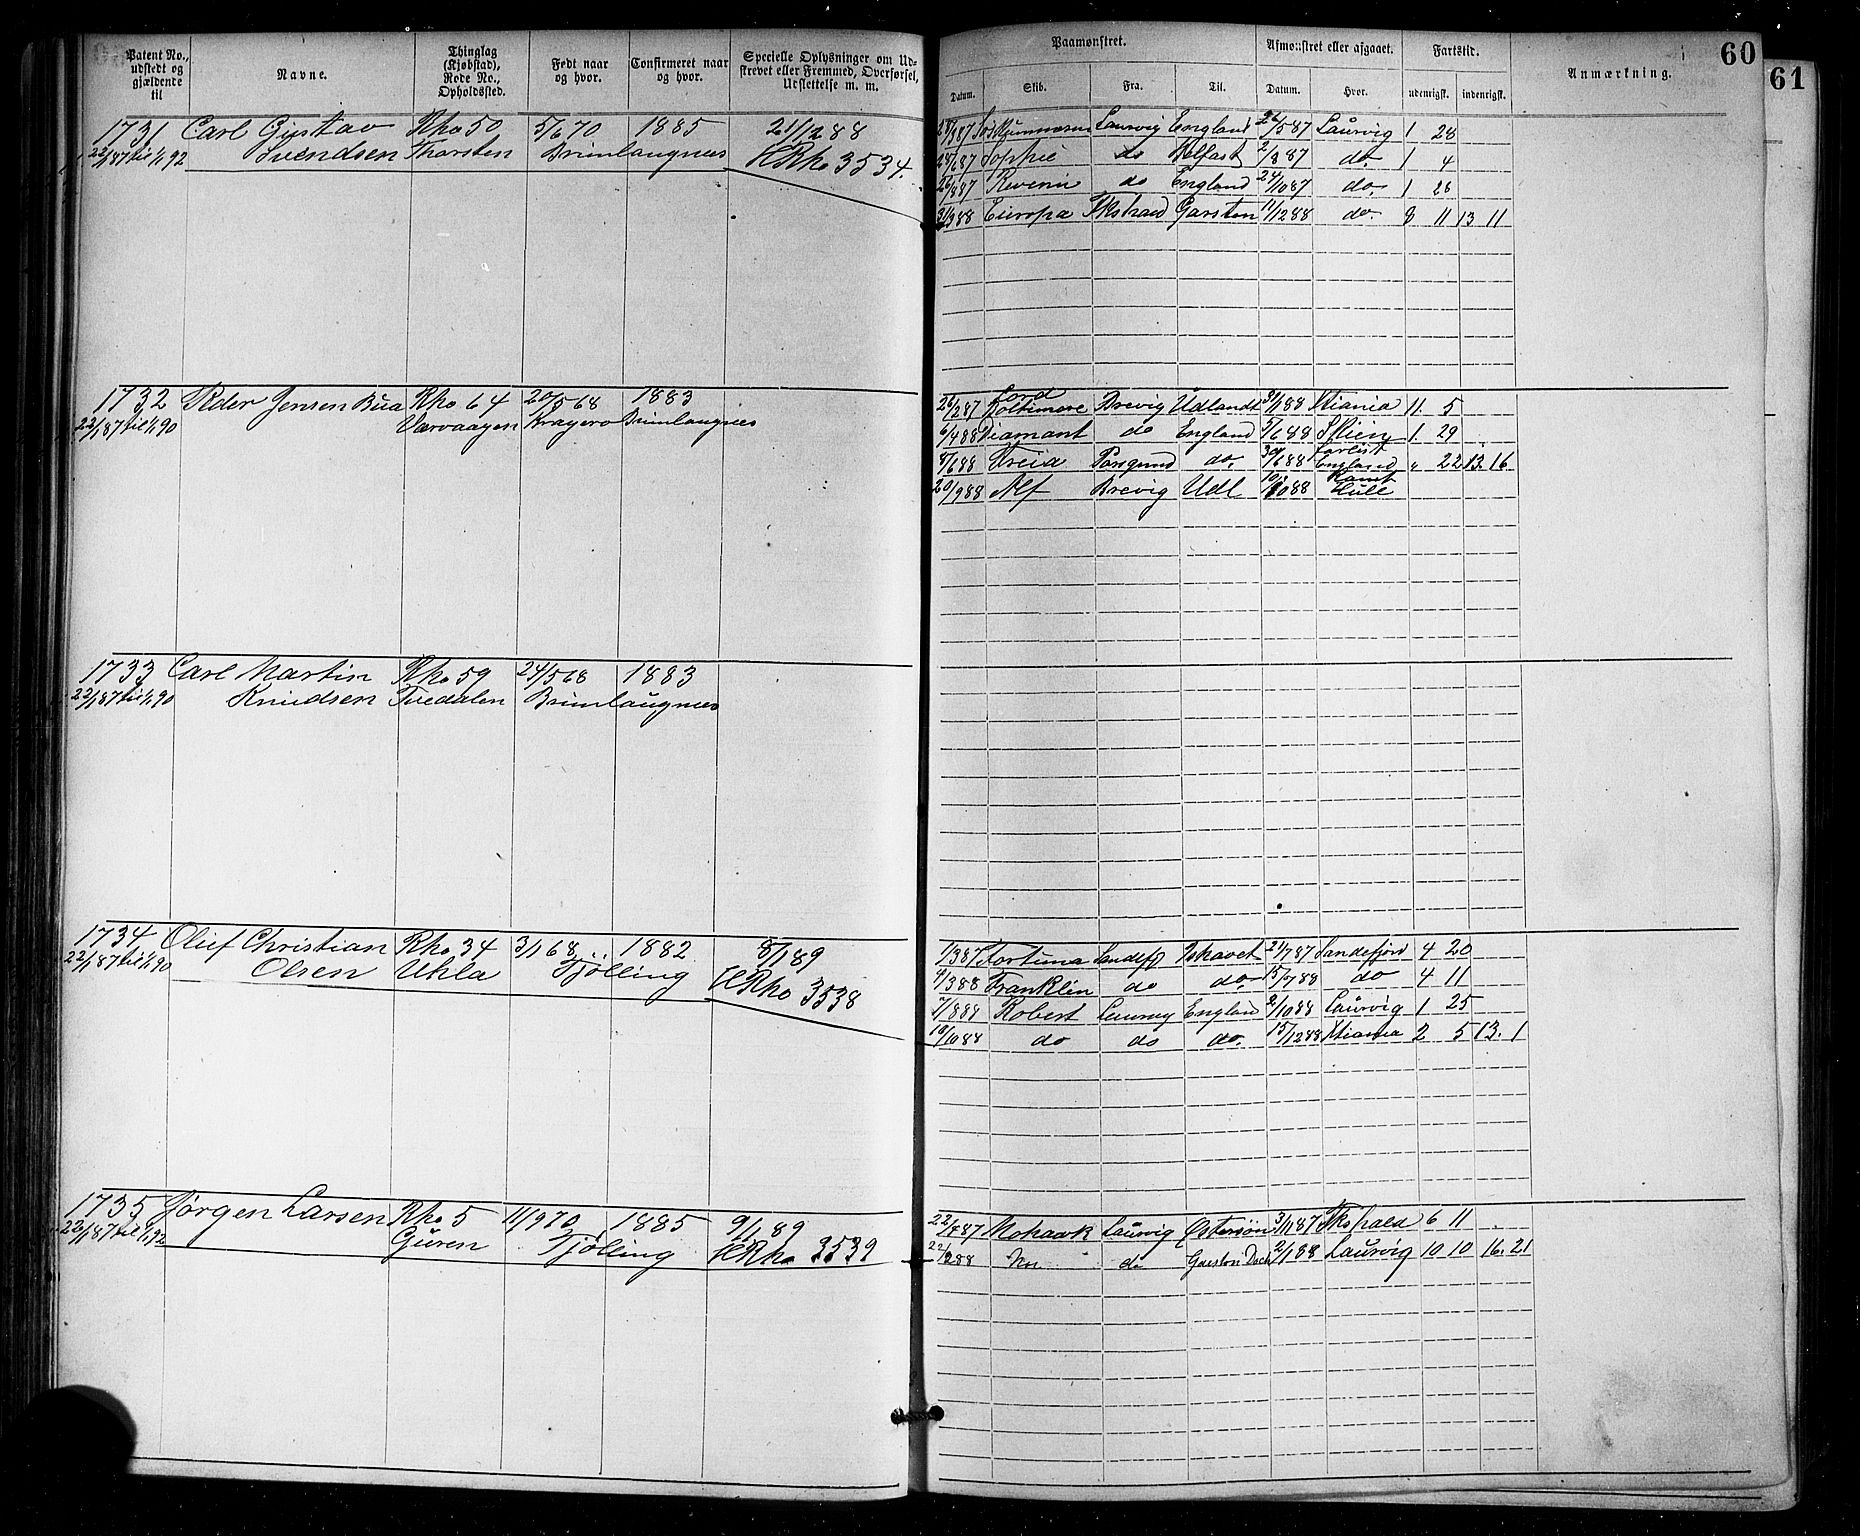 Patent No., udstedt og gjældende til
Navne.
Thinglag (Kjøbstad), Rode No., Opholdssted.
Født naar og hvor.
Confirmeret naar og hvor.
Specielle Oplysninger om Udskrevet eller Fremmed, Overførsel, Udslettelse m. m.
Paamønstret.
Afmønstret eller afgaaet.
Fartstid.
Anmærkning.
60
61
Datum. Skib. Fra. Til. Datum. Hvor. udenrigsk. indenrigsk.
1731 Carl Gustav Rho 50 5/6 70 1885 21/12 88
22/1 87 til 1/1 92 Svendsen Thorsten Brunlaugnes HRho 3534.
Laurvig England 22/5 87 Laurvig 1 28
Sophie do Belfast 2/8 87 do. 1 4
26/8 87 do England 24/10 87 do. 1 28
31/3 88 Europa Fkshald Garston 11/12 88 do. 8 11 13 11
1732 Peder Jensen Bua Rho 64 20/5 68 1883
22/1 87 til 1/1 90 Værvaagen Kragerø Brunlaugnes
26/2 87 Lord Baltimore Brevig Udlandt 31/1 88 Xtiania 11. 5
6/4 88 Diamant do England 5/6 88 Skien 1. 29
8/6 88 Freia Porsgrund do. 30/6 88 England " 22 13. 16
20/9 88 Alf Brevig Udl 10/10 88 Rømt Hull
1733 Carl Martin Rho 59 24/5 68 1883
22/1 87 til 1/1 90 Knudsen Tvedalen Brunlaugnes
1734 Oluf Christian Rho 34 3/1 68 1882 8/1 89
22/1 87 til 1/1 90 Olsen Uhla Tjølling HRho 3538
1/3 87 Fortuna Sandefj Ishavet 21/7 87 Sandefjord 4 20
4/3 88 Franklin do do. 15/7 88 do 4 11
7/8 88 Robert Laurvig England 2/10 88 Laurvig 1 25
10/10 88 do do do. 15/12 88 Xtiania 2 5 13. 1
1735 Jørgen Larsen Rho 5 11/9 70 1885 9/1 89
22/1 87 til 1/1 92 Guren Tjølling HRho 3539
Mohawk Laurvig Østersøn 3/11 87 Fkshald 6 11
22/2 88 do Garston Dock 2/1 88 Laurvig 10 10 16. 21